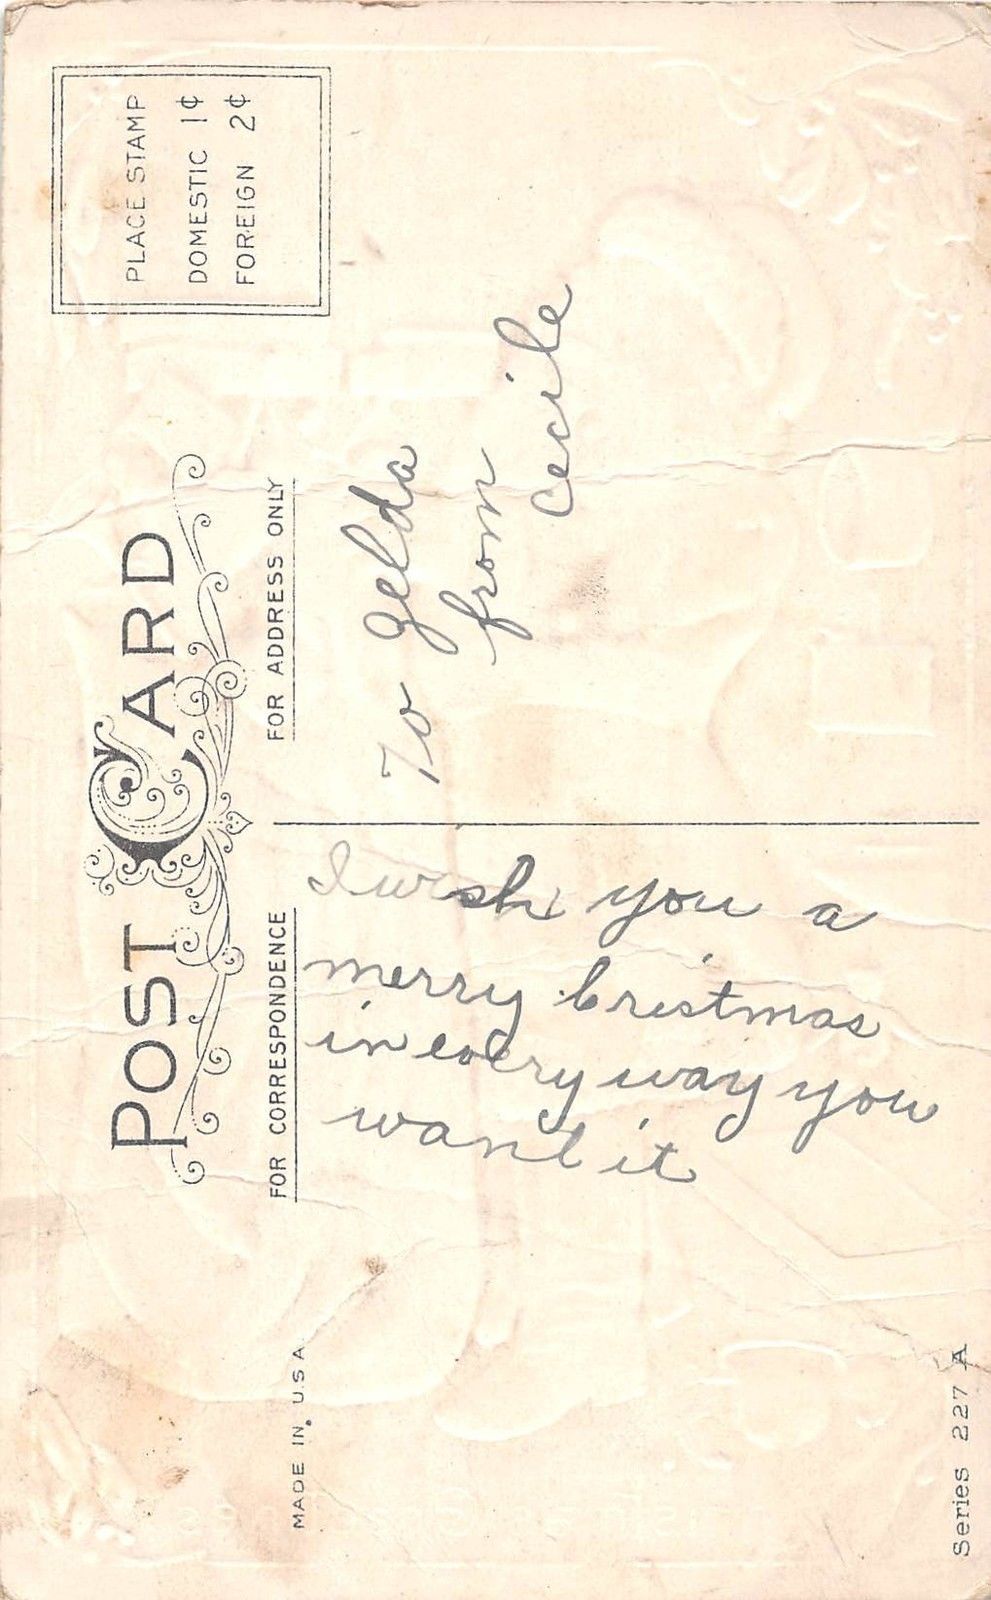 POST CARD
PLACE STAMP
DOMESTIC 1¢
FOREIGN 2¢
FOR CORRESPONDENCE
FOR ADDRESS ONLY
I wish you a
merry Cristmas
in every way you
want it
To Zelda
from
Cecile
MADE IN U.S.A.
Series 227 A